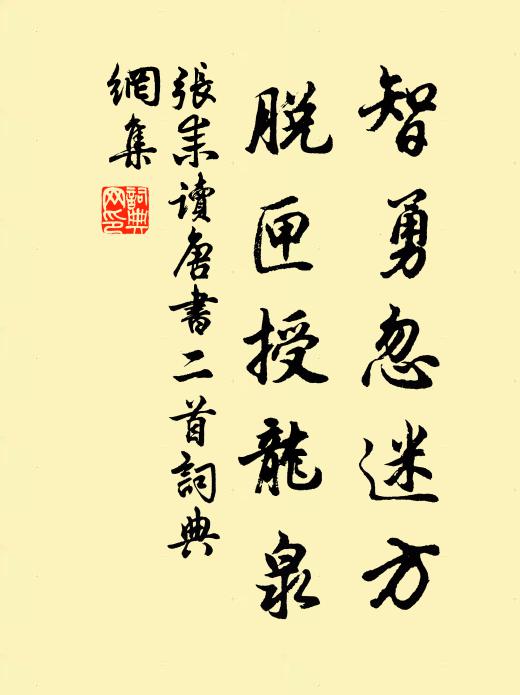 智勇忽迷方
脱匣授龍泉
張耒讀唐書二首詞典
網集
詞典
网印